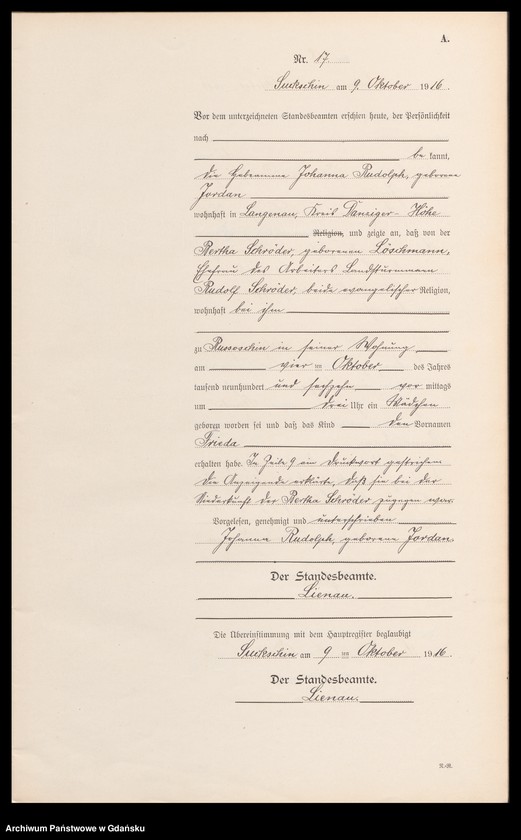 A.
Nr. 17
Suckschin am 9. Oktober 1916.
Vor dem unterzeichneten Standesbeamten erschien heute, der Persönlichkeit
nach
be kannt,
die Hebeamme Johanna Rudolph, geborene
Jordan
wohnhaft in Langenau, Kreis Danziger-Höhe
Religion, und zeigte an, daß von der
Bertha Schröder, geborenen Löschmann,
Ehefrau des Arbeiters Landsturmmann
Rudolf Schröder, beide evangelischer Religion,
wohnhaft bei ihm
zu Russoschin in seiner Wohnung
am vier ten Oktober des Jahres
tausend neunhundert und sechzehn vor mittags
um drei Uhr ein Mädchen
geboren worden sei und daß das Kind den Vornamen
Frieda
erhalten habe. In Zeile 9 ein Druckwort gestrichen
Die Anzeigende erklärte, daß sie bei der
Niederkunft der Bertha Schröder zugegen war.
Vorgelesen, genehmigt und unterschrieben
Johanna Rudolph, geborene Jordan.
Der Standesbeamte.
Lienau.
Die Übereinstimmung mit dem Hauptregister beglaubigt
Suckschin am 9 ten Oktober 1916.
Der Standesbeamte.
Lienau.
Archiwum Państwowe w Gdańsku